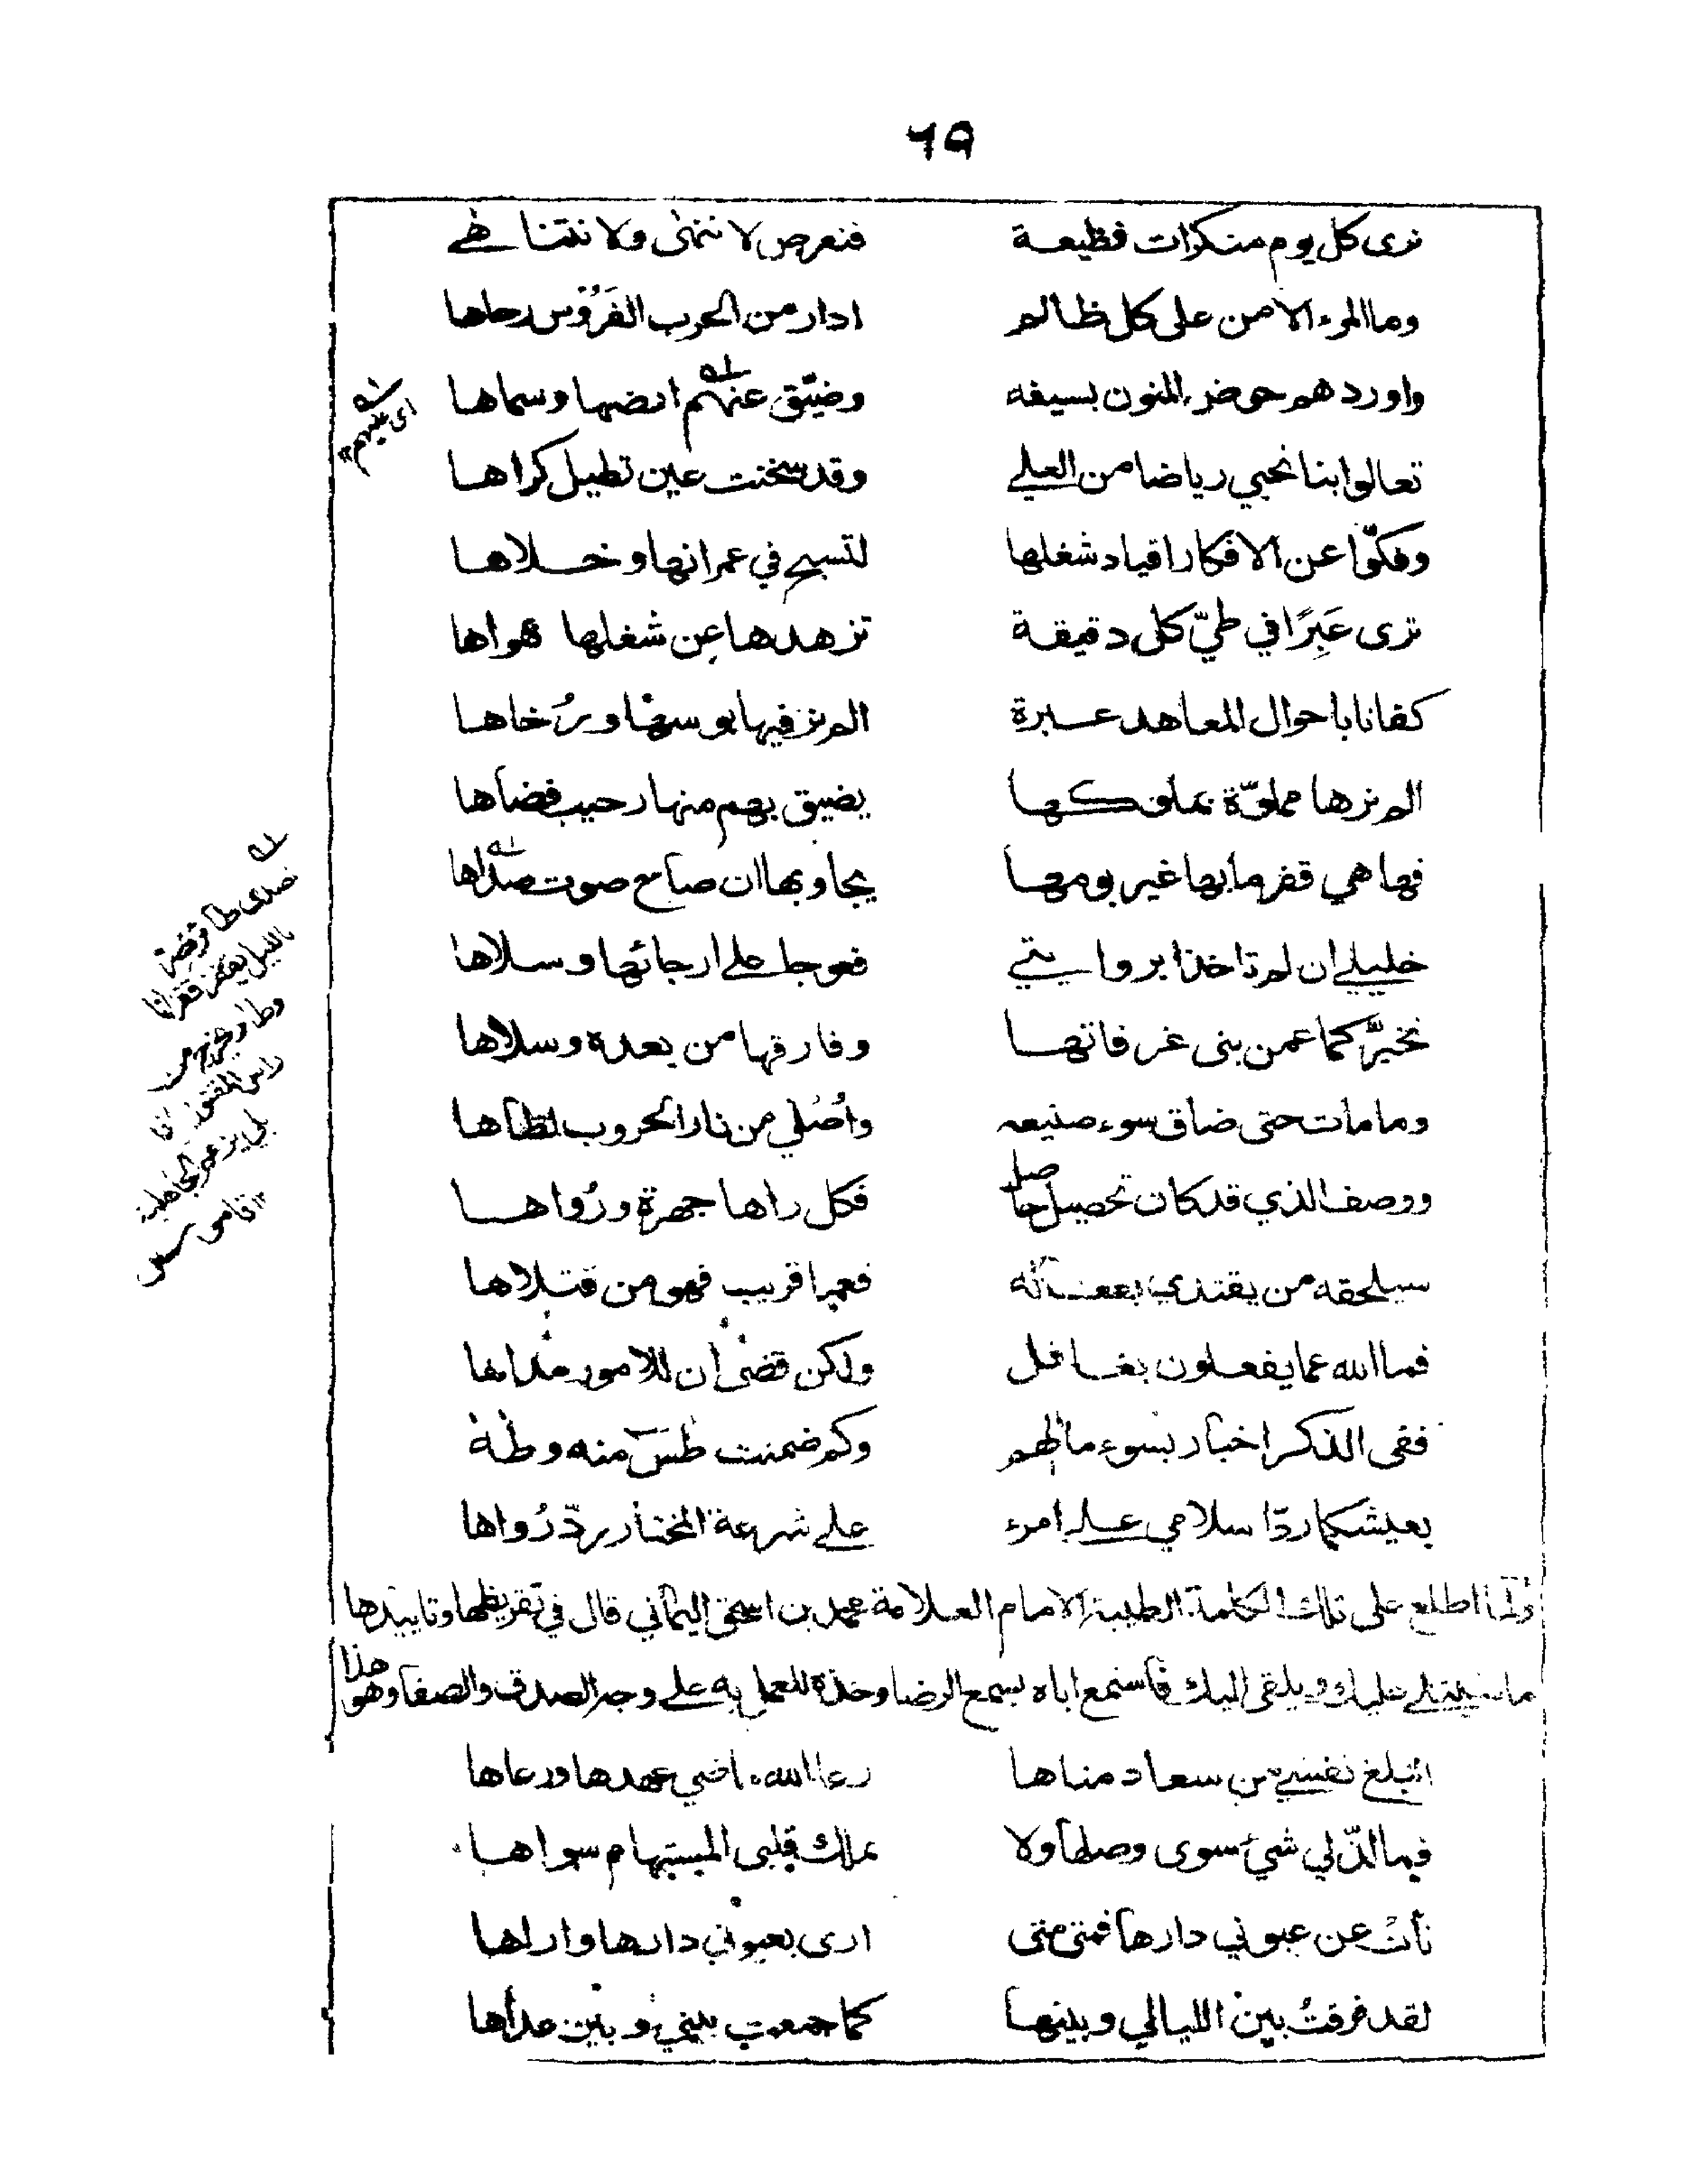 ٦٩
نرى كل يوم منكرات فظيعة فنعرض لا ننهى ولا نتناهى
وما المرء الا من على كل ظالم ادار من الحرب الضروس رحاها
واوردهم حوض المنون بسيفه وضيّق عنهم ارضها وسماها
تعالوا بنا نحيي رياضا من العلى وقد سخنت عين تطيل كراها
وفكّوا عن الافكار اقياد شغلها لتسبح في عمرانها وخلاها
ترى عِبَرًا في طيّ كل دقيقة تزهدها عن شغلها بهواها
كفانا باحوال المعاهد عبرة الم نر فيها بوسها ورُخاها
الم نرها مملوّة بملوكها يضيق بهم منها رحيب فضاها
فها هي قفر ما بها غير بومها يجاوبها ان صاح صوت صداها
خليلي ان لم تاخذا بروايتي فعوجا على ارجائها وسلاها
تخبّركما عمن بنى غرفاتها وفارقها من بعده وسلاها
وما مات حتى ضاق سوء صنيعه واُصلي من نار الحروب لظاها
ووصف الذي قد كان تحصيل حاصل فكل راها جهرة ورُواها
سيلحقه من يقتدي بفعاله فعما قريب فهو من قتلاها
فما الله عما يفعلون بغافل ولكن قضى ان للامور مداها
ففي الذكر اخبار بسوء مالهم وكم ضمنت طس منه وطه
بعيشكما ردّا سلامي على امرء على شرعة المختار يردّ رُواها
ولما اطلع على تلك الكلمة الطيبة الامام العلامة محمد بن اسحق اليماني قال في تقريظها وتاييدها
ما سيتلى عليك ويلقى اليك فاستمع اياه بسمع الرضا وخذه للعمل به على وجه الصدق والصفا وهو هذا
اتبلغ نفسي من سعاد مناها رعا الله ماضي عهدها ورعاها
فما لذّ لي شيء سوى وصلها ولا تملك قلبي المستهام سواها
نأت عن عيوني دارها فمتى متى ارى بعيوني دارها واراها
لقد فرقتْ بين الليالي وبينها كما جمعت بيني وبين عداها
اى عليهم
صدى طائر
بالليل يقفز قفزانا
وطائر يخرج من
راس المقتول اذا
بلي بزعم الجاهلية
قاموس